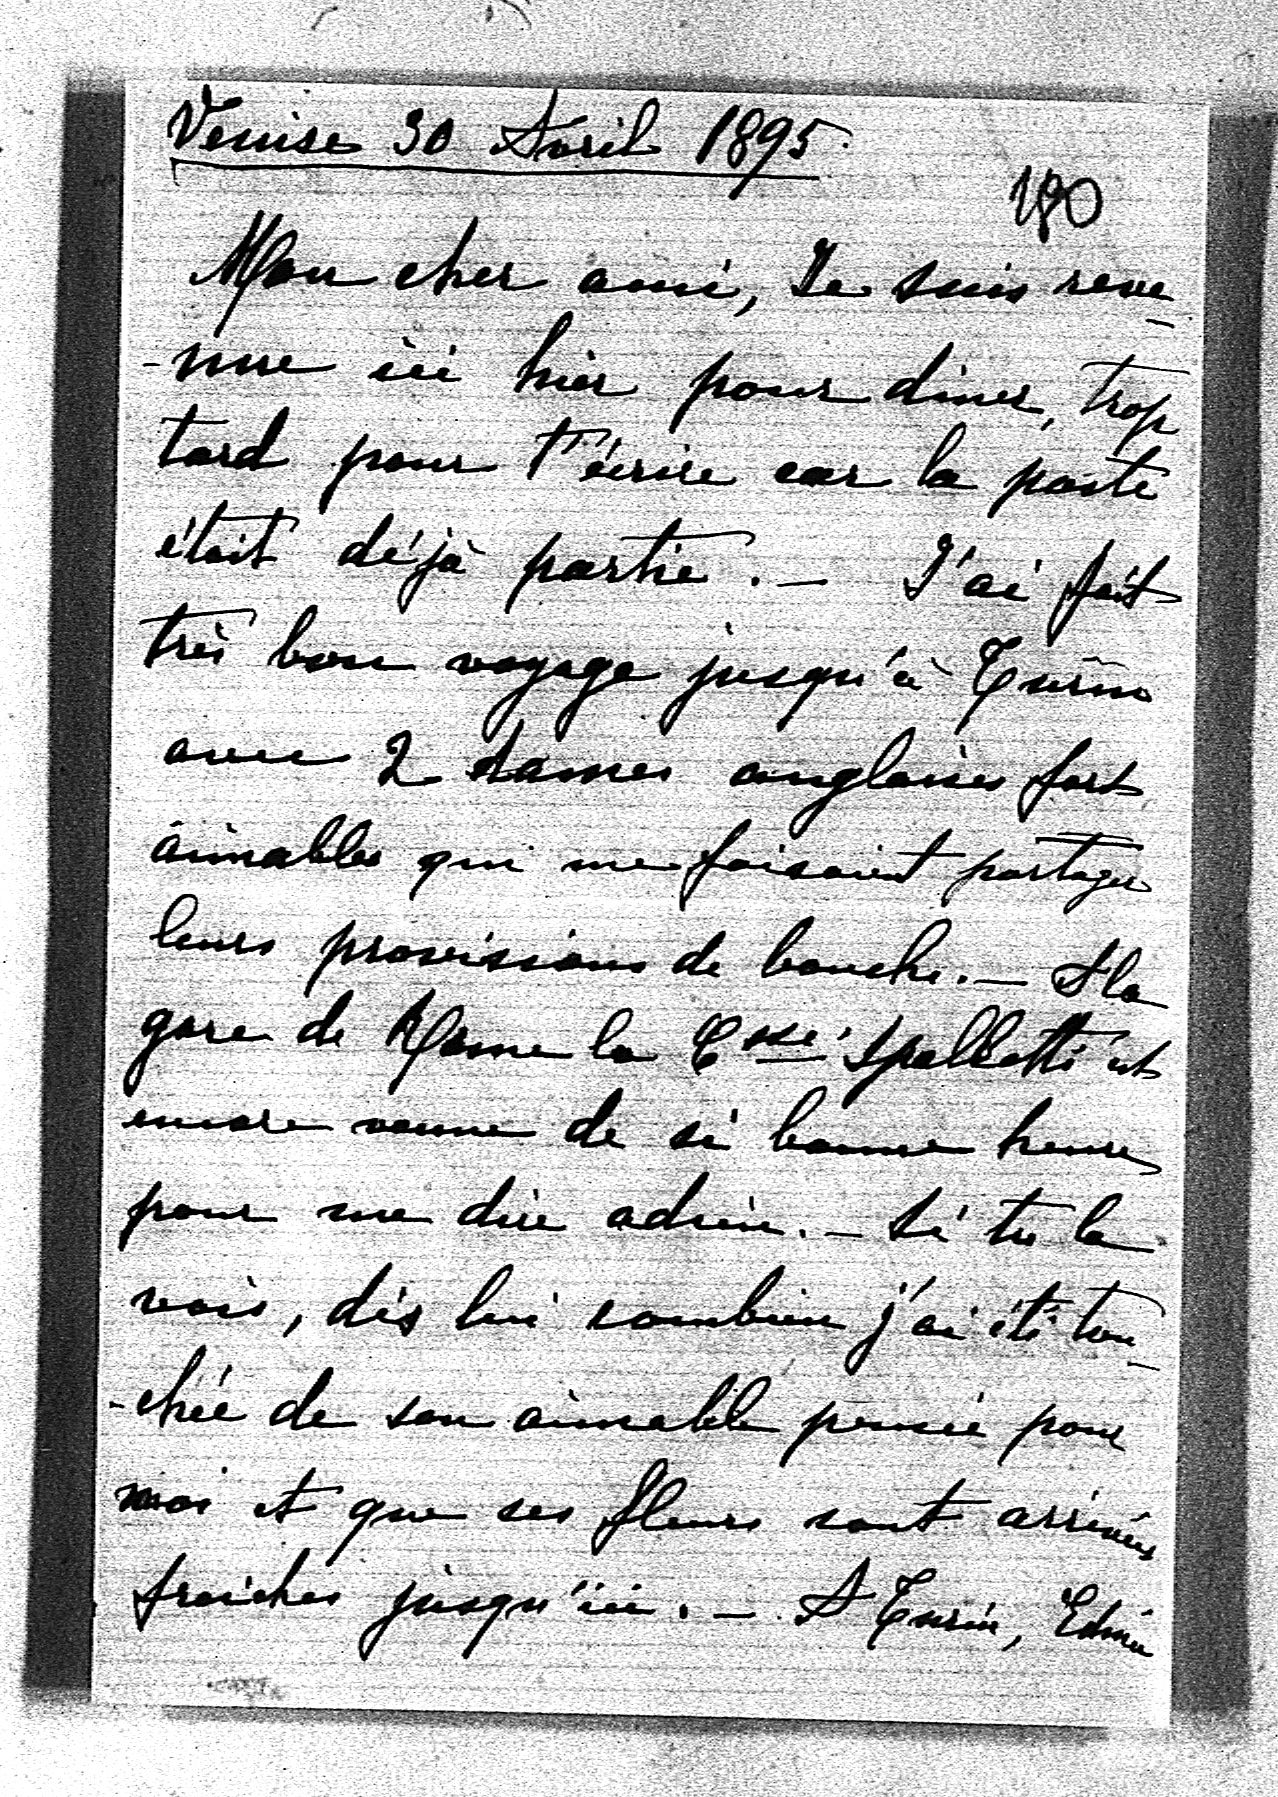 Venise 30 Avril 1895.
190
Mon cher ami, Je suis reve
-nue ici hier pour diner, trop
tard pour t'écrire car la poste
était déjà partie. — J'ai fait
très bon voyage jusqu'à Turin
avec 2 dames anglaises fort
aimables qui me faisaient partager
leurs provisions de bouche. — A la
gare de Rome la Csse Spalletti est
encore venue de si bonne heure
pour me dire adieu. — Si tu la
vois, dis lui combien j'ai été tou
-chée de son aimable pensée pour
moi et que ses fleurs sont arrivées
fraiches jusqu'ici. — A Turin,